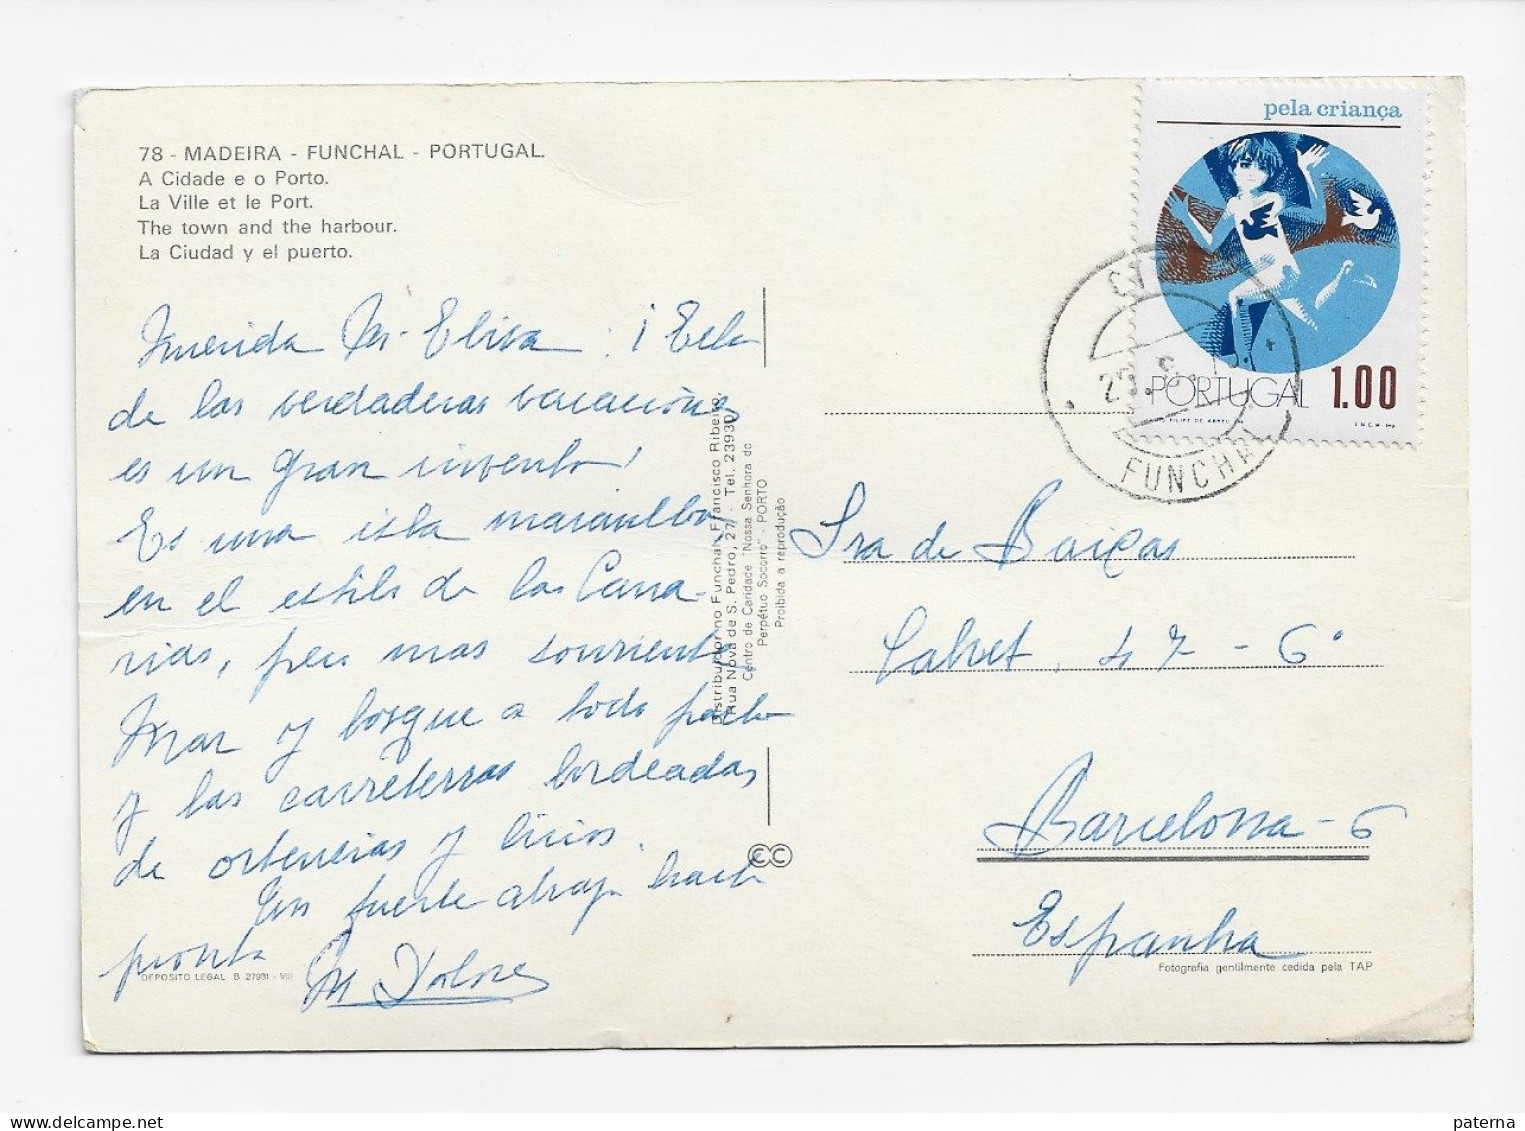 78 - MADEIRA - FUNCHAL - PORTUGAL.
A Cidade e o Porto.
La Ville et le Port.
The town and the harbour.
La Ciudad y el puerto.
Querida Mª Elisa: ¡
de las verdaderas vacaciones
es un gran invento!
Es una isla maravillosa
en el estilo de las Cana-
rias, pero mas sonriente
Mar y bosque a todo pasto
y las carreteras bordeadas
de ortensias y lirios.
Un fuerte abrazo hasta
pronto
Mª Dolores
DEPOSITO LEGAL B 27931 - VIII
Distribuidor no Funchal: Francisco Ribeiro,
Rua Nova de S. Pedro, 27 - Tel. 23930
Centro de Caridade "Nossa Senhora do
Perpétuo Socorro" - PORTO
Proibida a reprodução
CC
pela criança
PORTUGAL 1.00
FILIPE DE ABREU
FUNCHAL
Sra de Buigas
Calvet, 47 - 6°
Barcelona - 6
Espanha
Fotografia gentilmente cedida pela TAP
paterna